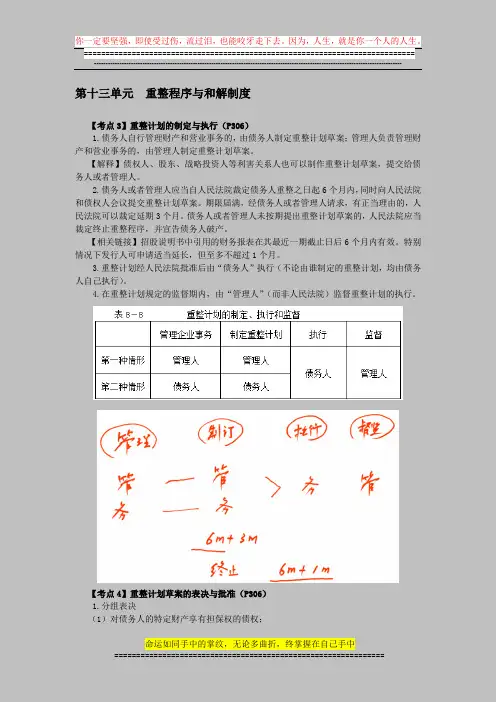 你一定要坚强，即使受过伤，流过泪，也能咬牙走下去。因为，人生，就是你一个人的人生。
第十三单元 重整程序与和解制度
【考点3】重整计划的制定与执行（P306）
1.债务人自行管理财产和营业事务的，由债务人制定重整计划草案；管理人负责管理财
产和营业事务的，由管理人制定重整计划草案。
【解释】债权人、股东、战略投资人等利害关系人也可以制作重整计划草案，提交给债
务人或者管理人。
2.债务人或者管理人应当自人民法院裁定债务人重整之日起6个月内，同时向人民法院
和债权人会议提交重整计划草案。期限届满，经债务人或者管理人请求，有正当理由的，人
民法院可以裁定延期3个月。债务人或者管理人未按期提出重整计划草案的，人民法院应当
裁定终止重整程序，并宣告债务人破产。
【相关链接】招股说明书中引用的财务报表在其最近一期截止日后6个月内有效。特别
情况下发行人可申请适当延长，但至多不超过1个月。
3.重整计划经人民法院批准后由“债务人”执行（不论由谁制定的重整计划，均由债务
人自己执行）。
4.在重整计划规定的监督期内，由“管理人”（而非人民法院）监督重整计划的执行。
表8－8 重整计划的制定、执行和监督
管理企业事务 制定重整计划 执行 监督
第一种情形 管理人 管理人 债务人 管理人
第二种情形 债务人 债务人
管理 制订 执行 监督
管 — 管 > 务 管
务 — 务
6m+3m
终止 6m+1m
【考点4】重整计划草案的表决与批准（P306）
1.分组表决
（1）对债务人的特定财产享有担保权的债权；
命运如同手中的掌纹，无论多曲折，终掌握在自己手中